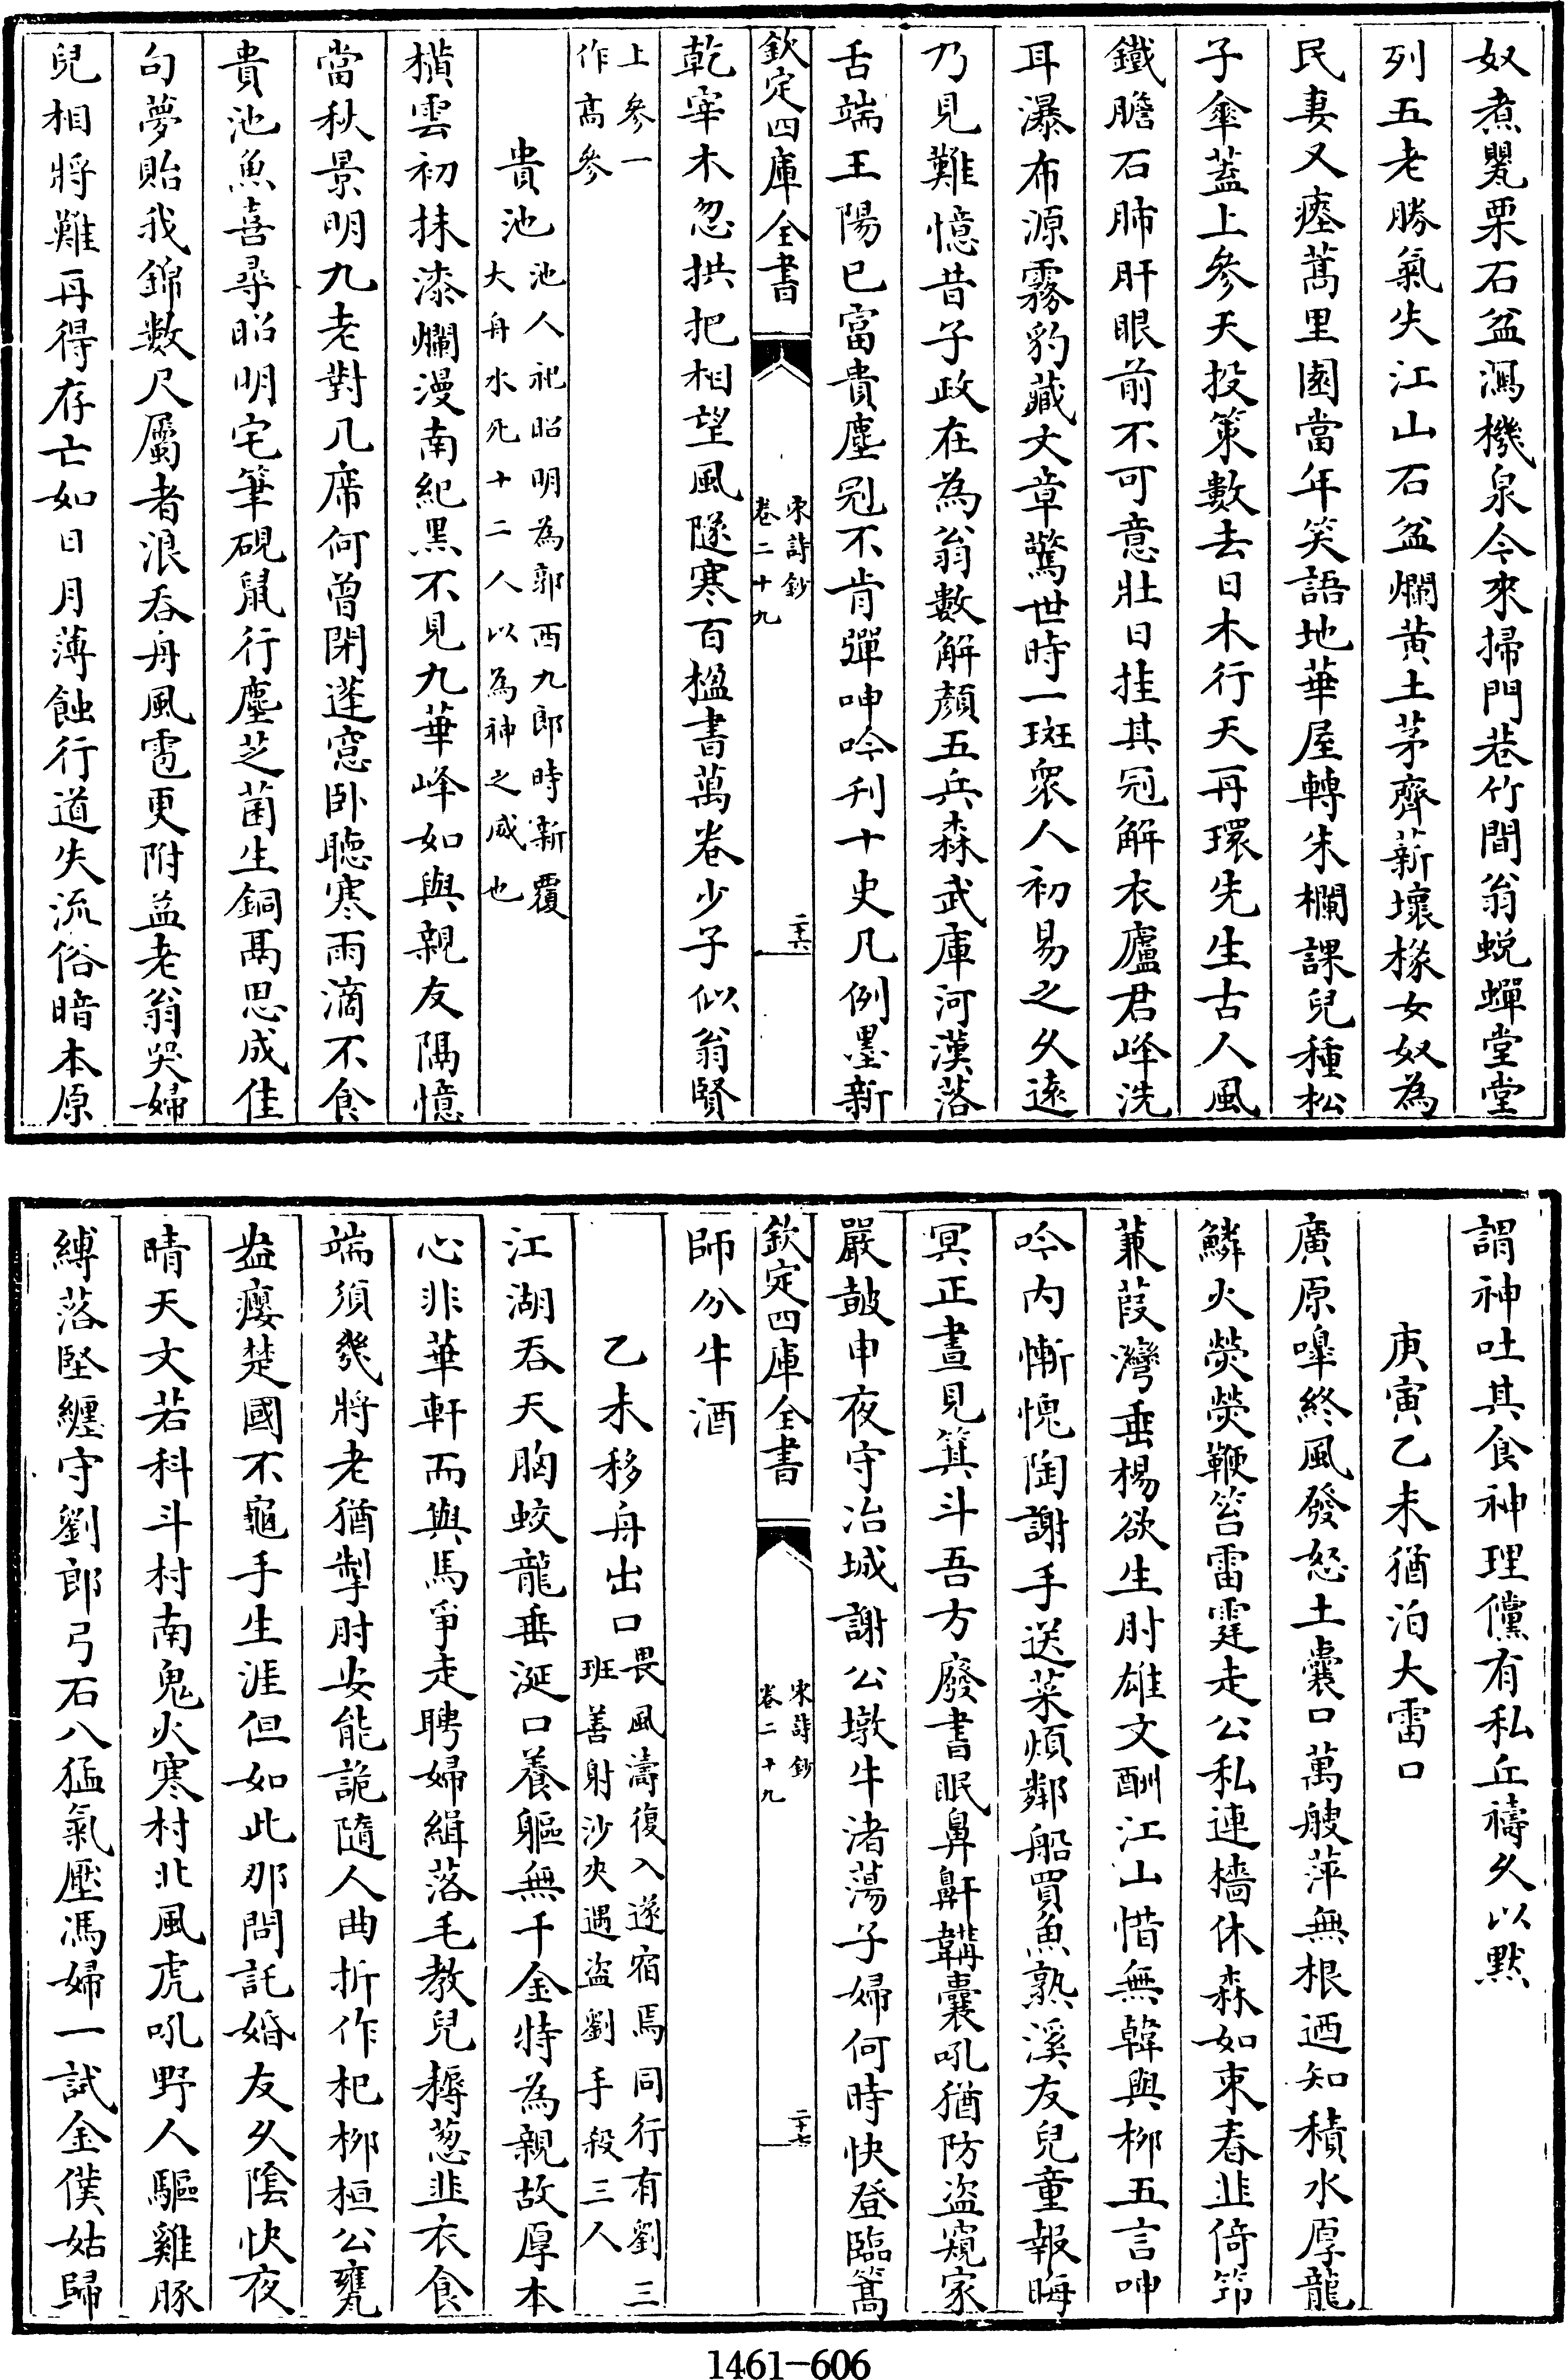 奴煮甖栗石盆瀉機泉今來掃門巷竹間翁蛻蟬堂堂
列五老勝氣失江山石盆爛黄土茅齊薪壞椽女奴為
民妻又瘞蒿里園當年笑語地華屋轉朱欄課兒種松
子傘蓋上參天投䇿數去日木行天再環先生古人風
鐵膽石肺肝眼前不可意壯日挂其冠解衣廬君峰洗
耳瀑布源霧豹藏文章驚世時一斑衆人初易之久遠
乃見難憶昔子政在為翁數解顔五兵森武庫河漢落
舌端王陽已富貴塵冠不肯彈呻吟刋十史凡例墨新
欽定四庫全書
宋詩鈔
卷二十九
二十六
乾宰木忽拱把相望風隧寒百楹書萬卷少子似翁賢
上參一
作高參
貴池
池人祀昭明為郭西九郎時新覆
大舟水死十二人以為神之威也
横雲初抹漆爛漫南紀黑不見九華峰如與親友隔憶
當秋景明九老對几席何曾閉蓬窓卧聴寒雨滴不食
貴池魚喜尋昭明宅筆硯鼠行塵芝菌生銅鬲思成佳
句夢貽我錦數尺屬者浪吞舟風雹更附益老翁哭婦
兒相將難再得存亡如日月薄蝕行道失流俗暗本原
謂神吐其食神理儻有私丘禱久以黙
庚寅乙未猶泊大雷口
廣原嘷終風發怒土囊口萬艘萍無根迺知積水厚龍
鱗火熒熒鞭笞雷霆走公私連檣休森如束春韭倚笻
蒹葭灣垂楊欲生肘雄文酬江山惜無韓與栁五言呻
吟内慚愧陶謝手送菜煩鄰船買魚熟溪友兒童報晦
冥正晝見箕斗吾方廢書眠鼻鼾韝囊吼猶防盜窺家
嚴皷申夜守冶城謝公墩牛渚蕩子婦何時快登臨篙
欽定四庫全書
宋詩鈔
卷二十九
二十七
師分牛酒
乙未移舟出口
畏風濤復入遂宿焉同行有劉三
班善射沙夾遇盜劉手殺三人
江湖吞天胸蛟龍垂涎口養軀無千金特為親故厚本
心非華軒而與馬爭走聘婦緝落毛教兒耨葱韭衣食
端須幾將老猶掣肘安能詭隨人曲折作杞栁桓公甕
盎癭楚國不龜手生涯但如此那問託婚友久隂快夜
晴天文若科斗村南鬼火寒村北風虎吼野人驅雞豚
縛落堅纒守劉郎弓石八猛氣壓馮婦一試金僕姑歸
1461-606